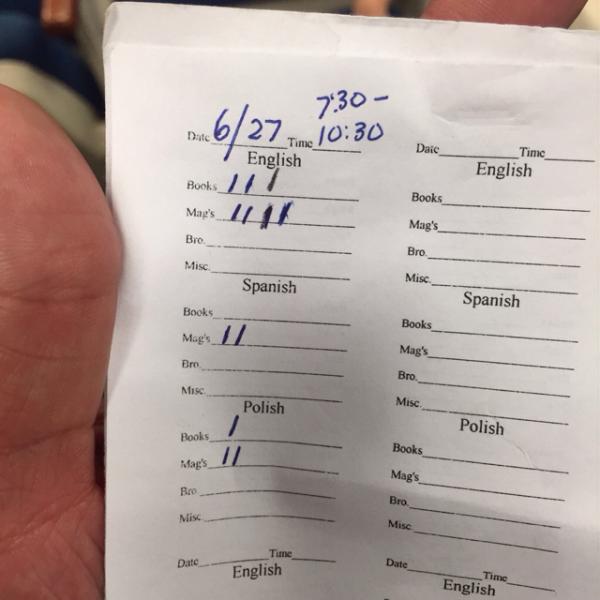 7:30 -
Date 6/27 Time 10:30
English
Books ///
Mag's ////
Bro.
Misc.
Spanish
Books
Mag's //
Bro.
Misc.
Polish
Books /
Mag's //
Bro
Misc
Date Time
English
Date Time
English
Books
Mag's
Bro.
Misc.
Spanish
Books
Mag's
Bro.
Misc.
Polish
Books
Mag's
Bro.
Misc
Date Time
English